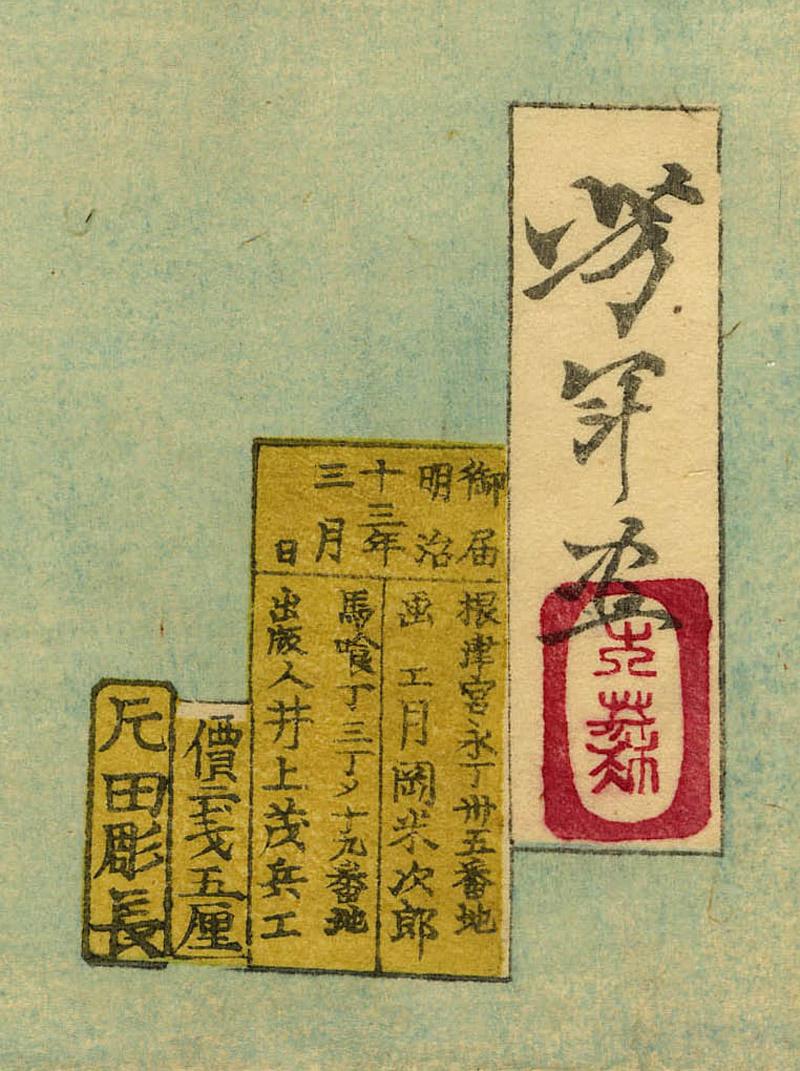 芳年画
大蘇
御届
明治
十三年
三月
日
根津宮永丁卅五番地
画工月岡米次郎
馬喰丁三丁メ十九番地
出版人井上茂兵エ
價二戋五厘
片田彫長